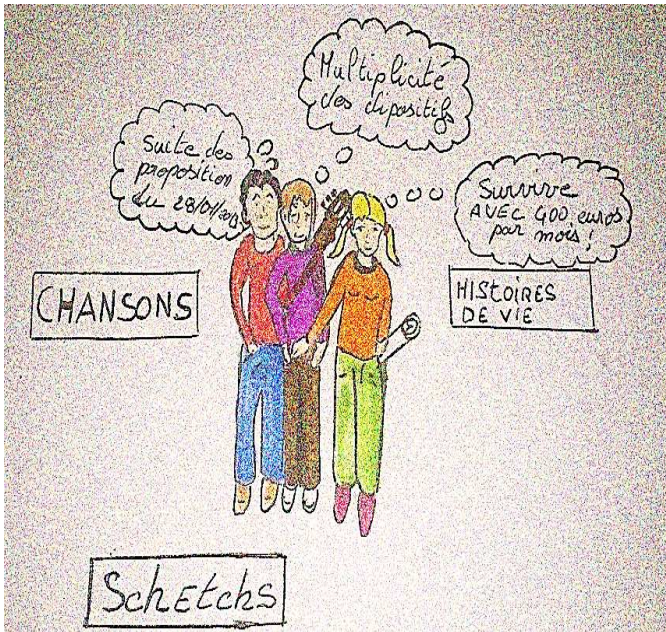 Multiplicité
des dipositifs
suite des
proposition
du 28/01/2013
Survivre
AVEC 400 euros
par mois !
CHANSONS
HISTOIRES
DE VIE
SchEtchs